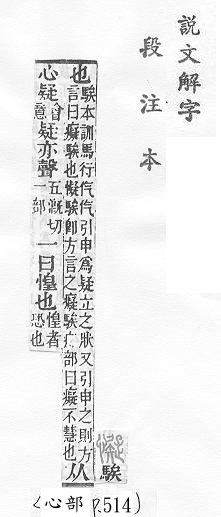 說文解字
段注本
騃
也騃本訓馬行仡仡引申爲疑立之狀又引申之則方
言曰癡騃也懝騃卽方言之癡騃疒部曰癡不慧也从
心疑會意疑亦聲五漑切一部一曰惶也惶者恐也
(心部 P.514)